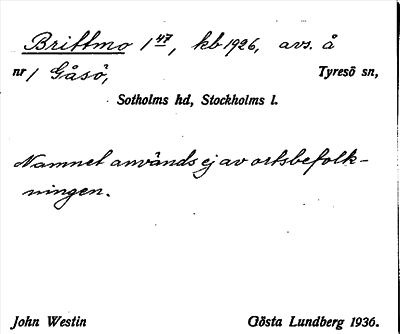 Brittmo 1 47, kb 1926, avs. å
nr 1 Gåsö, Tyresö sn,
Sotholms hd, Stockholms l.
Namnet används ej av ortsbefolk-
ningen.
John Westin Gösta Lundberg 1936.